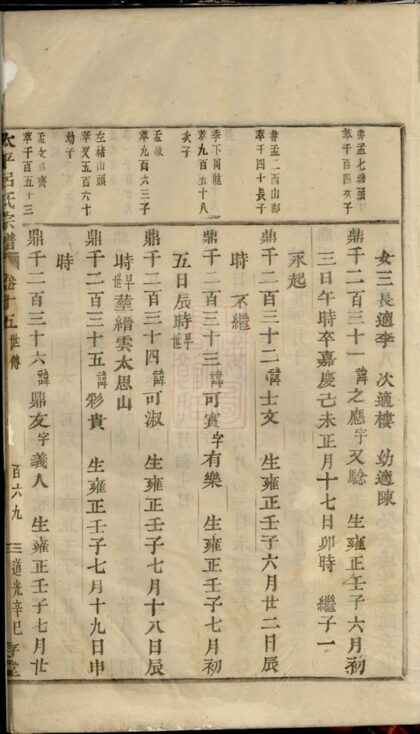 女三長適李　次適樓　幼適陳
莘千百四次子
鼎千二百三十一　諱之應字又駼　生雍正壬子六月初
三日午時卒嘉慶己未正月十七日卯時　繼子一
永起
壽孟二西山邨
莘千四十長子
鼎千二百三十二　諱士文　生雍正壬子六月廿二日辰
時　不繼
季下岡龍
莘九百五十八
次子
鼎千二百三十三　諱可賓字有樂　生雍正壬子七月初
五日辰時早世
莘九百六三子
鼎千二百三十四　諱可淑　生雍正壬子七月十八日辰
時早世　塟縉雲太恩山
左楮山頭
莘又五百六十
幼子
鼎千二百三十五　諱彩貴　生雍正壬子七月十九日申
時
莘千百五十三
鼎千二百三十六　諱鼎友字義人　生雍正壬子七月廿
太平呂氏宗譜　卷十五　世傳　百六九　道光辛巳